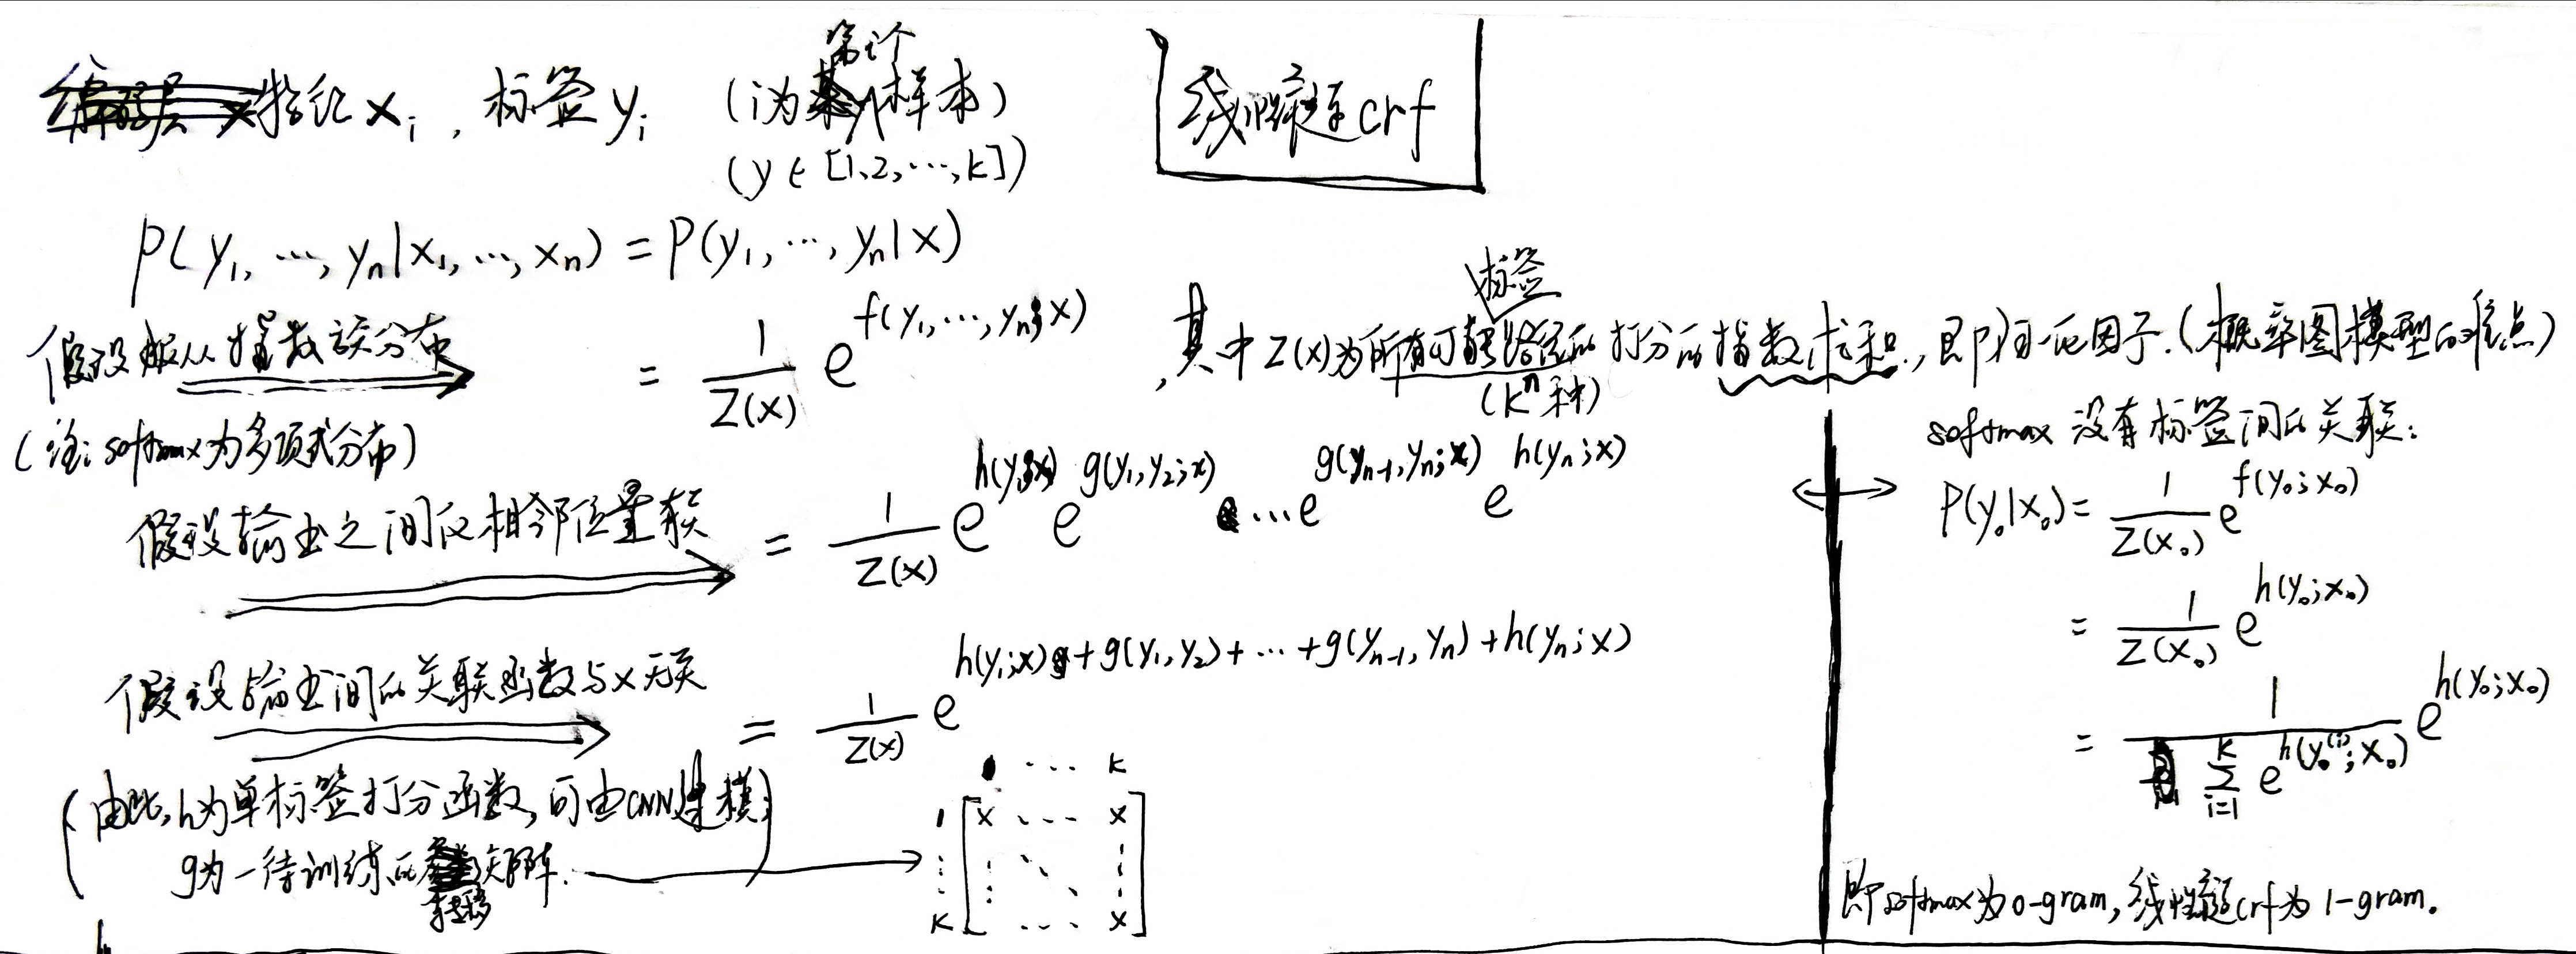 特征 xᵢ , 标签 yᵢ (i为第i个样本)
(y ∈ [1,2,…,k])
线性链crf
P(y₁, …, yₙ|x₁, …, xₙ) = P(y₁, …, yₙ|x)
假设服从指数族分布
(注: softmax为多项式分布)
= 1/Z(x) e^f(y₁, …, yₙ; x) , 其中Z(x)为所有可能标签路径的打分的指数求和, 即归一化因子.(概率图模型的难点)
(kⁿ种)
假设输出之间仅相邻位置有关
= 1/Z(x) e^h(y₁;x) e^g(y₁,y₂;x) … e^g(yₙ₋₁,yₙ;x) e^h(yₙ;x)
假设输出间的关联函数与x无关
= 1/Z(x) e^h(y₁;x)+g(y₁,y₂)+…+g(yₙ₋₁,yₙ)+h(yₙ;x)
(由此, h为单标签打分函数, 可由CNN建模;
g为一待训练的转移矩阵.)
1 … k
1 [ x … x ]
⋮ ⋱ ⋮
k [ … x ]
softmax 没有标签间的关联:
P(y₀|x₀) = 1/Z(x₀) e^f(y₀;x₀)
= 1/Z(x₀) e^h(y₀;x₀)
= 1/∑ᵢ₌₁ᵏ e^h(y₀⁽ⁱ⁾;x₀) e^h(y₀;x₀)
即softmax为0-gram, 线性链crf为1-gram.